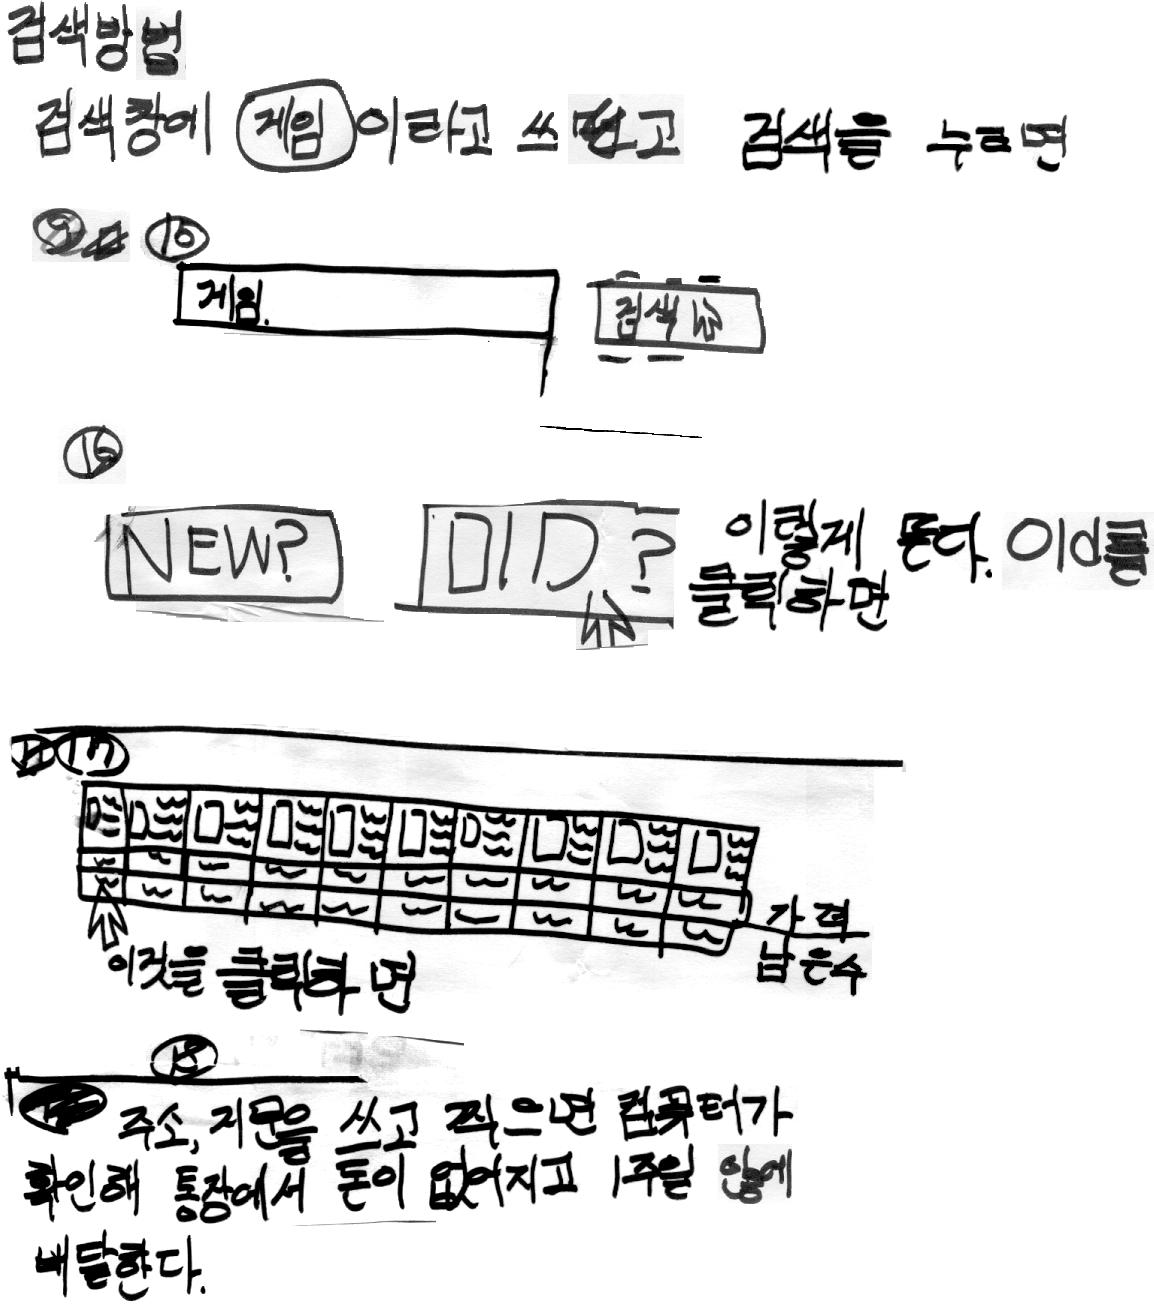 검색방법
검색창에 게임이라고 쓰고 검색을 누르면
15
게임.
검색
16
NEW?
이렇게 뜬다. 이를
클릭하면
17
가격
남은수
이것을 클릭하면
18
주소, 지문을 쓰고 찍으면 컴퓨터가
확인해 통장에서 돈이 없어지고 1주일 안에
배달한다.